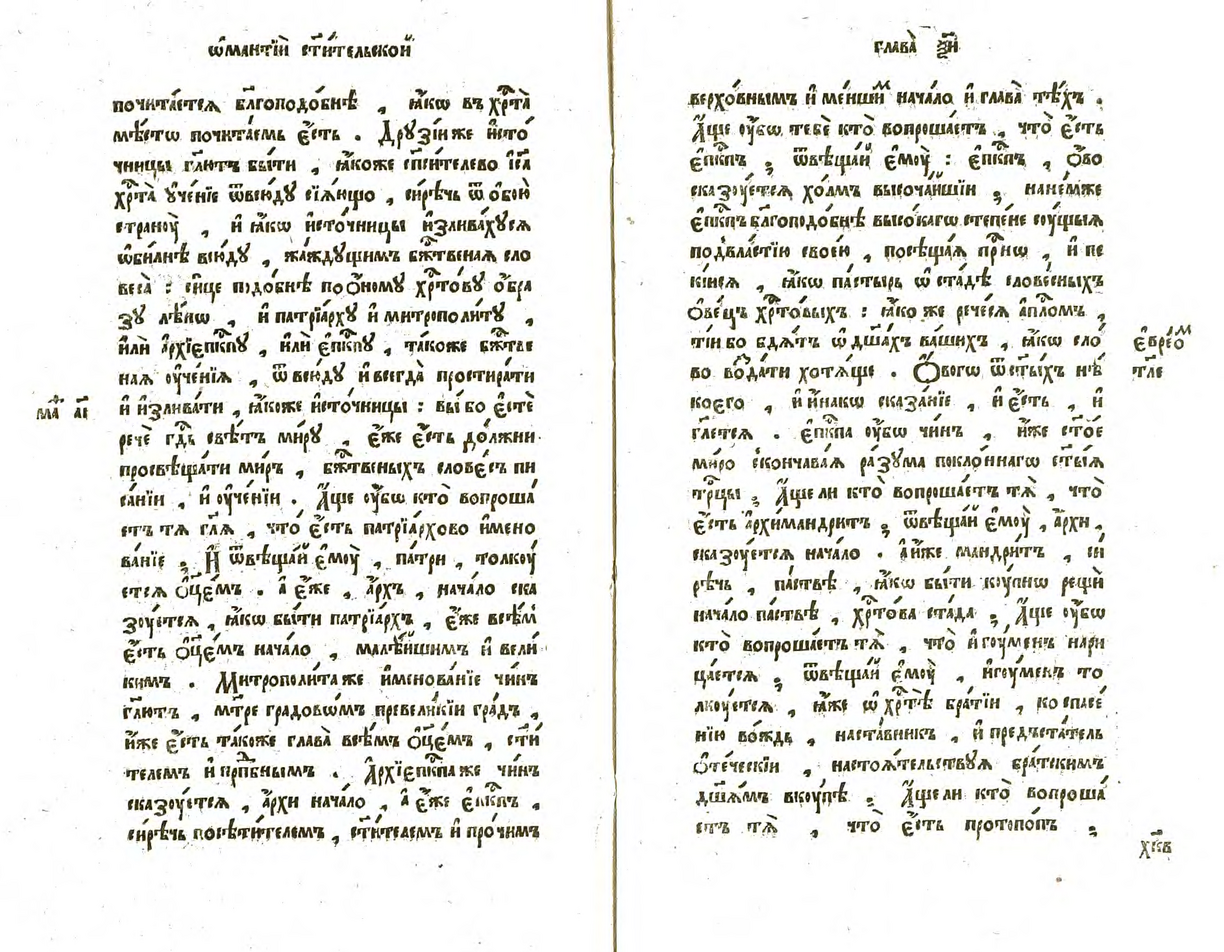 ѡ҆мантїй ст҃и́тельской
почита́етсѧ бл҃гоподо́бнѣ , ꙗ҆́кѡ въ хрⷭ҇та̀
мѣ́стѡ почита́емь є҆́сть . Дрꙋзі́и же и҆сто́
чницы гл҃ютъ бы́ти , ꙗ҆́коже сп҃си́телево і҆с҃а
хрⷭ҇та̀ ᲂу҆че́нїе ѿвсю́дꙋ сїѧ́ющо , си́рѣчь ѿ ѻ҆бою̀
странꙋ̀ , и҆ ꙗ҆́кѡ и҆сто́чницы и҆злива́хꙋсѧ
ѡ҆би́лнѣ всю́дꙋ , жа́ждꙋщимъ бжⷭ҇твенаѧ сло
веса̀ : си́це подо́бнѣ по ѻ҆́номꙋ хрⷭ҇то́вꙋ ѻ҆́бра
зꙋ лѣ́пѡ , и҆ патрїа́рхꙋ и҆ митрополи́тꙋ ,
и҆лѝ а҆рхїєпⷭ҇кпꙋ , и҆лѝ є҆пⷭ҇кпꙋ , та́коже бжⷭ҇тве
наѧ ᲂу҆че́нїѧ , ѿвсю́дꙋ и҆ всегда̀ простира́ти
и҆ и҆злива́ти , ꙗ҆́коже и҆сто́чницы : вы́ бо є҆стѐ
речѐ гдⷭ҇ь свѣ́тъ ми́рꙋ , є҆́же є҆́сть до́лжни
просвѣща́ти ми́ръ , бжⷭ҇твеныхъ слове́съ пи
са́нїи , и҆ ᲂу҆че́нїи . А҆́ще ᲂу҆́бѡ кто̀ вопроша́
етъ тѧ̀ гл҃ѧ , что̀ є҆́сть патрїа́рхово и҆мено
ва́нїе ; И҆ ѿвѣща́й є҆мꙋ̀ , па́три , толкꙋ́
етсѧ ѻ҆ц҃е́мъ . а є҆́же , а҆́рхъ , нача́ло ска
зꙋ́етсѧ , ꙗ҆́кѡ бы́ти патрїа́рхъ , є҆́же всѣ́м
є҆́сть ѻ҆ц҃е́мъ нача́ло , малѣ́йшимъ и҆ вели
кимъ . Митрополи́та же и҆менова́нїе чи́нъ
гл҃ютъ , мт҃ре градовѡ́мъ превели́кїи гра́дъ ,
и҆́же є҆́сть та́коже глава̀ всѣ́мъ ѻ҆ц҃е́мъ , ст҃и́
телемъ и҆ прпⷣбнымъ . А҆рхїєпⷭ҇кпа же чи́нъ
сказꙋ́етсѧ , а҆́рхи нача́ло , а є҆́же є҆пⷭ҇кпъ ,
си́рѣчь посѣти́телемъ , ст҃и́телемъ и҆ про́чимъ
глава̀
верхо́внымъ и҆ ме́ншимⷨ нача́ло и҆ глава̀ тѣ́хъ .
А҆́ще ᲂу҆́бѡ тебѐ кто̀ вопроша́етъ , что̀ є҆́сть
є҆пⷭ҇кпъ ; ѿвѣща́й є҆мꙋ̀ : є҆пⷭ҇кпъ , ѻ҆́во
сказꙋ́етсѧ хо́лмъ высоча́йшїи ; на не́мже
є҆пⷭ҇кпъ бл҃гоподо́бнѣ высо́кагѡ степе́не сꙋ́щыѧ
под̾ вла́стїю свое́ю , посѣща́ѧ прⷭ҇нѡ , и҆ пе
кі́йсѧ , ꙗ҆́кѡ па́стырь ѡ҆ ста́дѣ слове́сныхъ
ѻ҆ве́цъ хрⷭ҇то́выхъ : ꙗ҆́ко же рече́сѧ а҆пⷭ҇ломъ ,
ті́и бо бдѧ́тъ ѡ҆ дш҃а́хъ ва́шихъ , ꙗ҆́кѡ сло́
во во́здати хотѧ́ще . Ѻ҆́вогѡ ѿ ст҃ы́хъ нѣ́
коєго , и҆ и҆́накѡ сказа́нїе , и҆ є҆́сть , и҆
гл҃етсѧ . є҆пⷭ҇кпа ᲂу҆́бѡ чи́нъ , и҆́же ст҃о́е
ми́ро сконча́ваѧ ра́зꙋма покло́ннагѡ ст҃ы́ѧ
трⷪ҇цы ; А҆́ще ли кто̀ вопроша́етъ тѧ̀ , что̀
є҆́сть а҆рхимандри́тъ ; ѿвѣща́й є҆мꙋ̀ , а҆́рхи ,
сказꙋ́етсѧ нача́ло . а҆ и҆́же мандри́тъ , си́
рѣчь , па́ствѣ , ꙗ҆́кѡ бы́ти кꙋ́пнѡ рещѝ
нача́ло па́ствѣ , хрⷭ҇то́ва ста́да ; А҆́ще ᲂу҆́бѡ
кто̀ вопроша́етъ тѧ̀ , что̀ и҆гꙋ́менъ нари
ца́етсѧ ; ѿвѣща́й є҆мꙋ̀ , и҆гꙋ́менъ то
лкꙋ́етсѧ , ꙗ҆́же ѡ҆ хрⷭ҇тѣ̀ бра́тїи , ко спасе́
нїю во́ждь , наста́вникъ , и҆ предъста́тель
ѻ҆те́ческїи , настоѧ́тельствꙋѧ бра́тскимъ
дш҃а́мъ вкꙋ́пѣ ; А҆́ще ли кто̀ вопроша́
етъ тѧ̀ , что̀ є҆́сть протопо́пъ ;
є҆вре́ѡⷨ
тл҃е
хк҃в